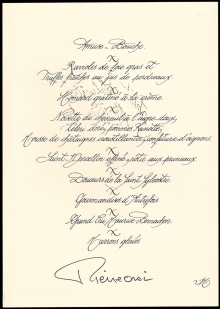 Amuse-Bouche
Ravioles de foie gras et
Truffes fraîches au jus de perdreaux
Homard gratiné à la crème
Noisette de chevreuil à l'aigre-doux,
céleri doré, pommes Reinette,
Mousse de chataignes croustillantes, confiture d'oignons
Saint-Marcellin affiné, rôtie aux pruneaux
Douceurs de la Saint Sylvestre
Gourmandises d'Autrefois
Grand Cru Maurice Bernachon
Marrons glacés